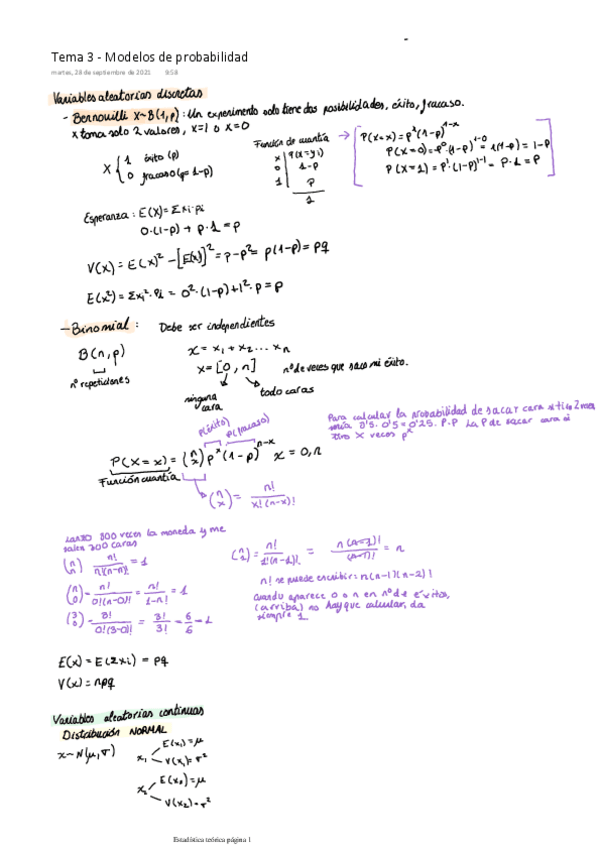 Tema 3 - Modelos de probabilidad
martes, 28 de septiembre de 2021 9:58
Variables aleatorias discretas
- Bernouilli X~B(1,p): Un experimento solo tiene dos posibilidades, éxito, fracaso.
x toma solo 2 valores, x=1 o x=0
X { 1 éxito (p)
0 fracaso (p=1-p)
Función de cuantía
x | P(X=xi)
0 | 1-p
1 | p
1
P(X=x) = p^x (1-p)^1-x
P(X=0) = p^0 · (1-p)^1-0 = 1(1-p) = 1-p
P(X=1) = p^1 · (1-p)^1-1 = p · 1 = p
Esperanza: E(X) = Σxi·pi
0·(1-p) + p·1 = p
V(x) = E(x)^2 - [E(x)]^2 = p-p^2 = p(1-p) = pq
E(x^2) = Σxi^2·pi = 0^2·(1-p)+1^2·p = p
- Binomial: Debe ser independientes
B(n,p)
nº repeticiones
x = x1 + x2 ... xn
x = [0, n] nº de veces que saco mi éxito.
ninguna cara
todo caras
P(éxito) P(fracaso)
P(X=x) = (n x) p^x (1-p)^n-x x = 0,n
Función cuantía
(n x) = n! / x!(n-x)!
Para calcular la probabilidad de sacar cara si tiro 2
0'5·0'5=0'25. P·P La P de sacar cara si
tiro X veces p^x
lanzo 300 veces la moneda y me
salen 300 caras
(n n) n! / n!(n-n)! = 1
(n 0) = n! / 0!(n-0)! = n! / 1·n! = 1
(3 0) = 3! / 0!(3-0)! = 3! / 3! = 6/6 = 1
(n 1) = n! / 1!(n-1)! = n(n-1)! / (n-1)! = n
n! se puede escribir: n(n-1)(n-2)!
Cuando aparece 0 o n en nº de éxitos,
(arriba) no hay que calcular, da
siempre 1
E(x) = E(Σxi) = pq
V(x) = npq
Variables aleatorias continuas
Distribución NORMAL
x~N(μ,σ)
x1 E(x1)=μ
V(x1)=σ^2
x2 E(x2)=μ
V(x2)=σ^2
Estadística teórica página 1